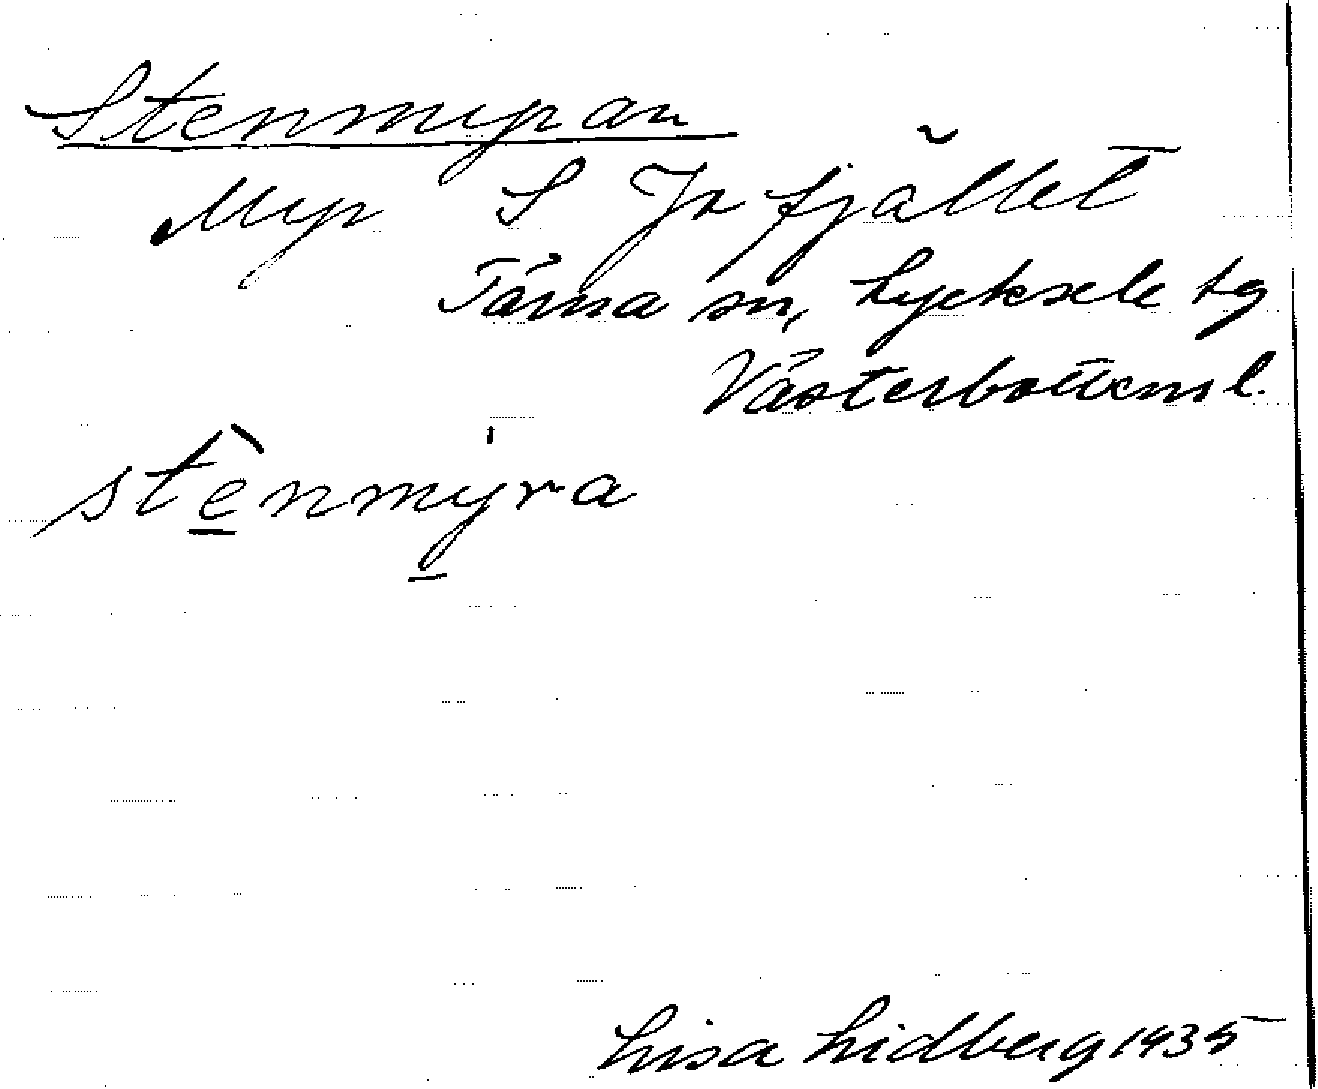 Stenmyran
Myr S Jofjället
Tärna sn, Lycksele tg
Västerbottens l.
stènmy'ra
Lisa Lidberg 1935